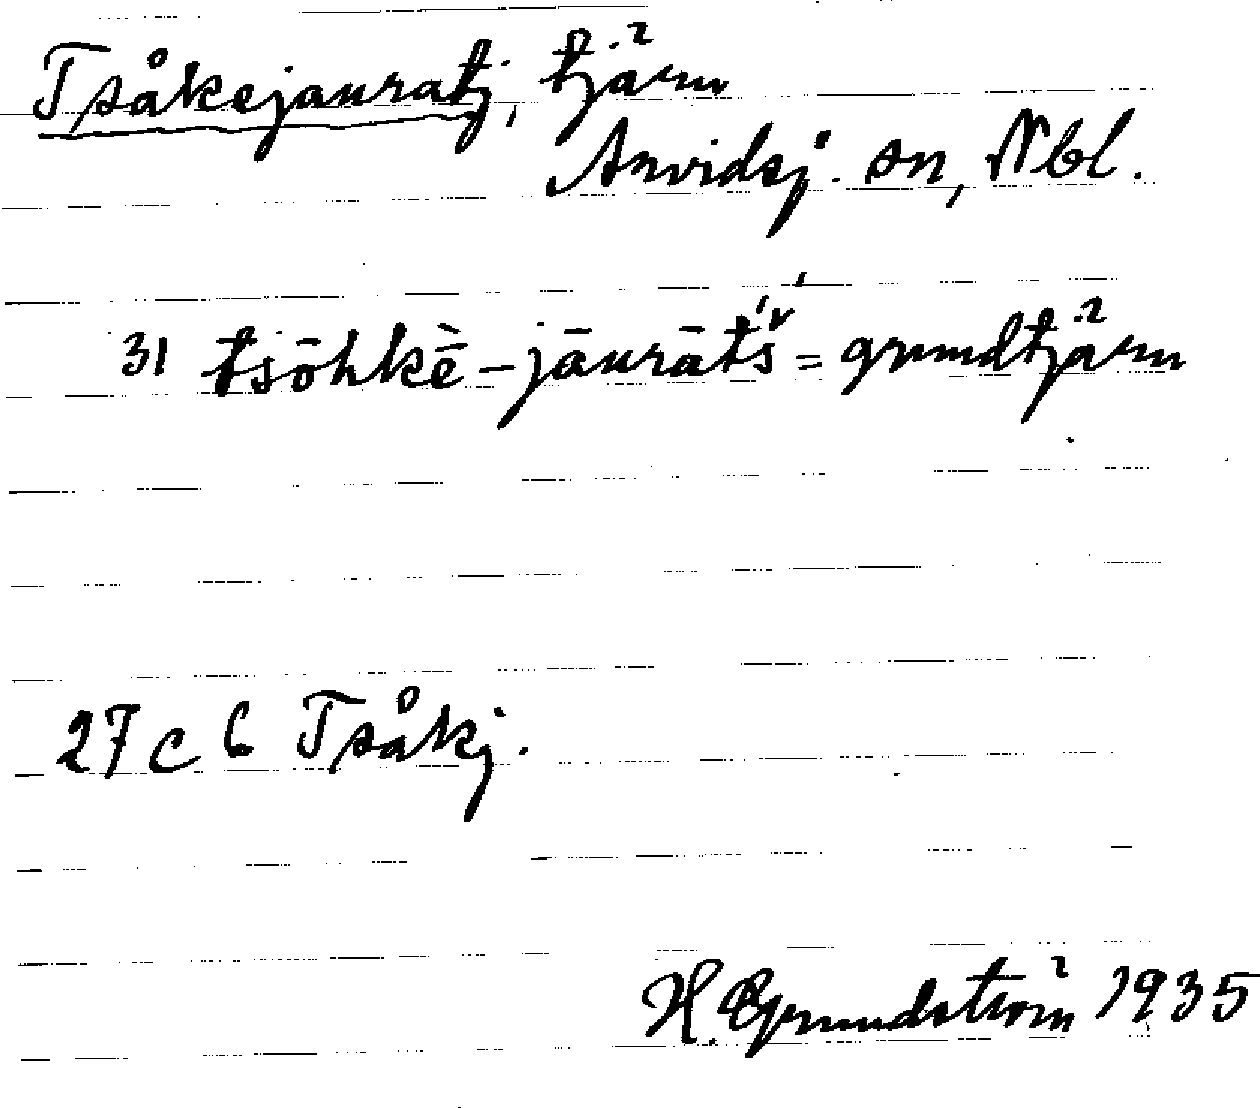 Tsåkejauratj, tjärn
Arvidsj. sn, Nbl.
31 tsōhkḕ-jāurātś̌ = grundtjärn
27 c 6 Tsåkj.
H. Grundström 1935